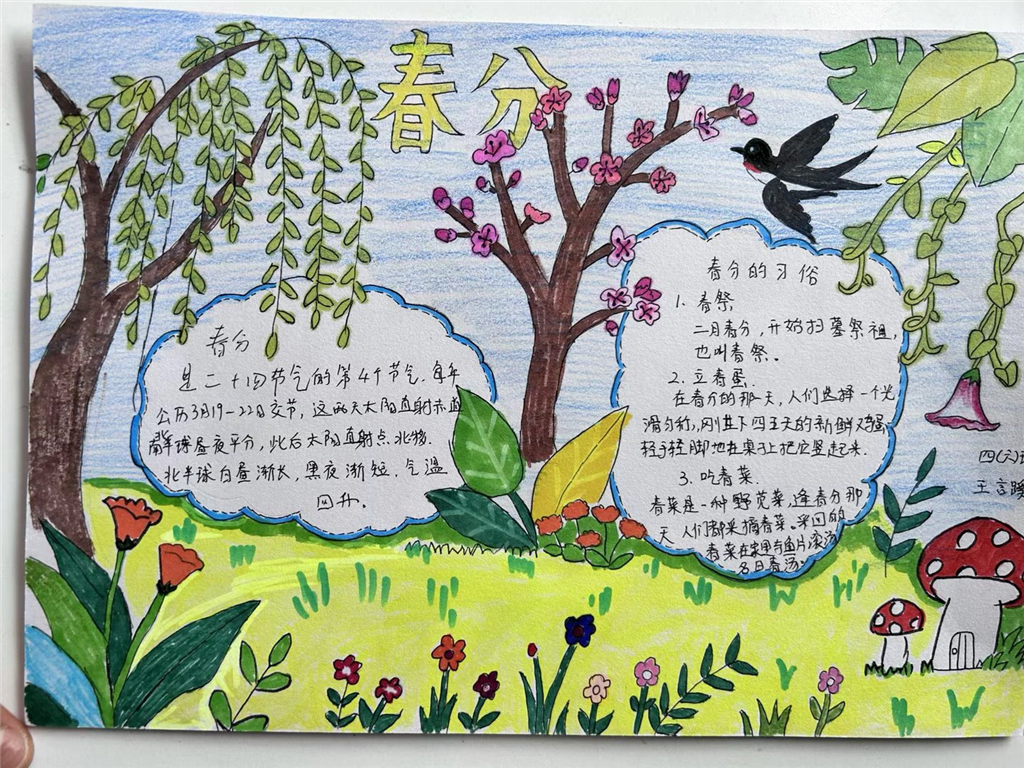 春分
春分
是二十四节气的第4个节气.每年
公历3月19-22日交节,这两天太阳直射赤道
球昼夜平分,此后太阳直射点北移.
北半球白昼渐长,黑夜渐短.气温
回升.
春分的习俗
1. 春祭
二月春分,开始扫墓祭祖,
也叫春祭。
2. 立春蛋.
在春分的那一天,人们选择一个光
滑匀称,刚生下四五天的新鲜鸡蛋
轻手轻脚地在桌子上把它竖起来.
3. 吃春菜.
春菜是一种野苋菜,逢春分那
天人们都采摘春菜。采回的
春菜在家里与鱼片滚汤
名曰春汤。
四(六)班
王言